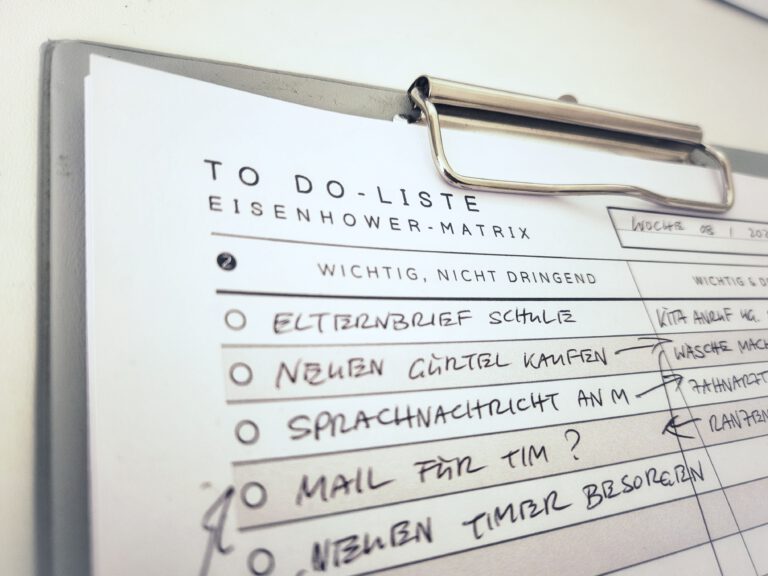 TO DO-LISTE
EISENHOWER-MATRIX
WOCHE 08 / 202
2
WICHTIG, NICHT DRINGEND
WICHTIG & D
ELTERNBRIEF SCHULE
KITA ANRUF WG.
NEUEN GÜRTEL KAUFEN
WÄSCHE MACH
SPRACHNACHRICHT AN M
ZAHNARZT
MAIL FÜR TIM ?
RANZEN
NEUEN TIMER BESORGEN